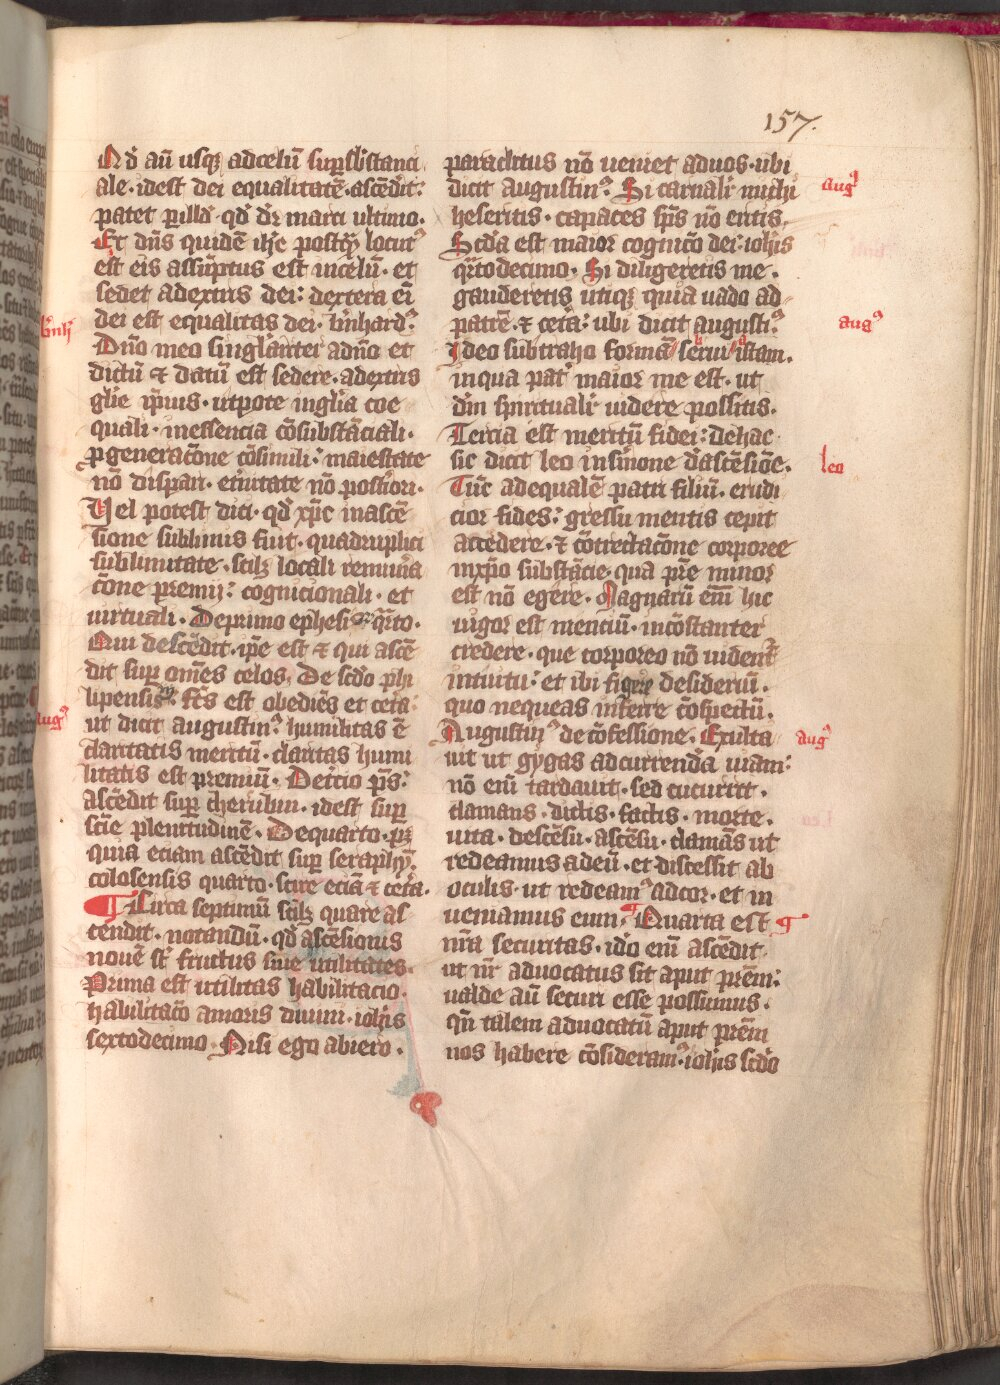 157.
Qd̄ aū usqꝫ adcelū sup̄sb̄stanci
ale · idest dei equalitatē · ascēdit:
patet p̄ illđ · qđ dr̄ marci ultimo ·
Et dn̄s quidē ihc̄ postq̄ȝ locut᷒
est eis assūptus est incelū · et
sedet adextris dei : dextera ei̅
dei est equalitas dei · b̄nhard᷒
b̄nh̄
Dn̄o meo singl̄ariter adn̄o et
dictū ⁊ datū est sedere · adextris
glīe ip̄ius · utpote inglīa coe
quali · inessencia cōsubstāciali ·
p̱generacōne cōsimili : maiestate
nō dispari · et̄nitate nō post̄iori ·
Vel potest dici · qđ xp̄c inascē
sione sublimis fuit · quadruplici
sublimitate · scilꝫ locali remun̄a
cōne premij : cognicionali · et
uirtuali · Deprimo ephesi · qr̄to ·
Qui descēdit · ip̄e est ⁊ qui ascē
dit sup̄ om̄es celos, De sc̄do phi
lipensiȝ · fc̄s est obediēs et cet̄a ·
Aug᷒
ut dicit augustin᷒ humilitas ē
claritatis meritū · claritas humi
litatis est premiū · Det̄cio p̄s :
ascēdit sup̄ cherubin · idest sup̄
scīe plenitudinē · Dequarto · pꝫ
quia etiam ascēdit sup̄ seraphyȝ ·
colosensis quarto · scire eciā ⁊ cet̄a ·
¶ Circa septimū scilꝫ quare as
cendit · notandū · qđ ascēsionis
nouē st̄ fructus siue utilitates ·
Prima est utilitas habilitacio ·
habilitacō amoris diuini · ioh̄is
sextodecimo · Nisi ego abiero ·
paraclitus nō ueniet aduos · ubi
dicit augustin᷒ · Si carnali michi
aug᷒
heseritis · capaces sp̄s nō eritis ·
Sc̄da est maior cognicō dei : ioh̄is
qr̄todecimo · Si diligeretis me ·
gauderetis utiqꝫ quia uado ad
patrē · ⁊ cet̄a : ubi dicit augusti᷒
aug᷒
Ideo subtraho formā serui istam ·
inqua pat̄ maior me est · ut
dm̄ spirituali᷒ uidere possitis ·
Tercia est meritū fidei : dehac
sic dicit leo insm̄one d̄ascēsiōe ·
leo
Tūc adequalē patri filiū · erudi
cior fides : gressu mentis cepit
accedere · ⁊ cōtrectacōne corporee
inxp̄o substācie · qua pr̄e minor
est nō egere · Magnarū em̄ hic
uigor est mentiū · incōstanter
credere · que corporeo nō uident᷑
intuitu : et ibi figere desideriū ·
quo nequeas inferre cōspectū ·
Augustin᷒ de cōfessione · Exulta
aug᷒
uit ut gygas adcurrendā uiam :
nō em̄ tardauit · sed cucurrit ·
clamans · dictis · factis · morte ·
uita · descēsu · ascēsu · clamās ut
redeamus adeū · et discessit ab
oculis · ut redeam᷒ adcor · et in
ueniamus eum · ¶ Quarta est ¶
nr̄a securitas · iđo em̄ ascēdit
ut nr̄ aduocatus sit aput prēm :
ualde aū securi esse possumus ·
qn̄ talem aduocatū aput prēm
nos habere cōsideram᷒ · ioh̄is sc̄do